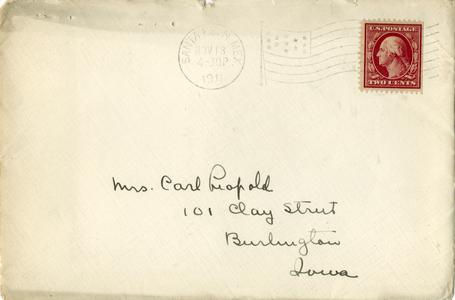 SANTA FE, N. MEX.
NOV 13
4-30P
1911
U.S. POSTAGE
TWO CENTS
Mrs. Carl Leopold
101 Clay Street
Burlington
Iowa